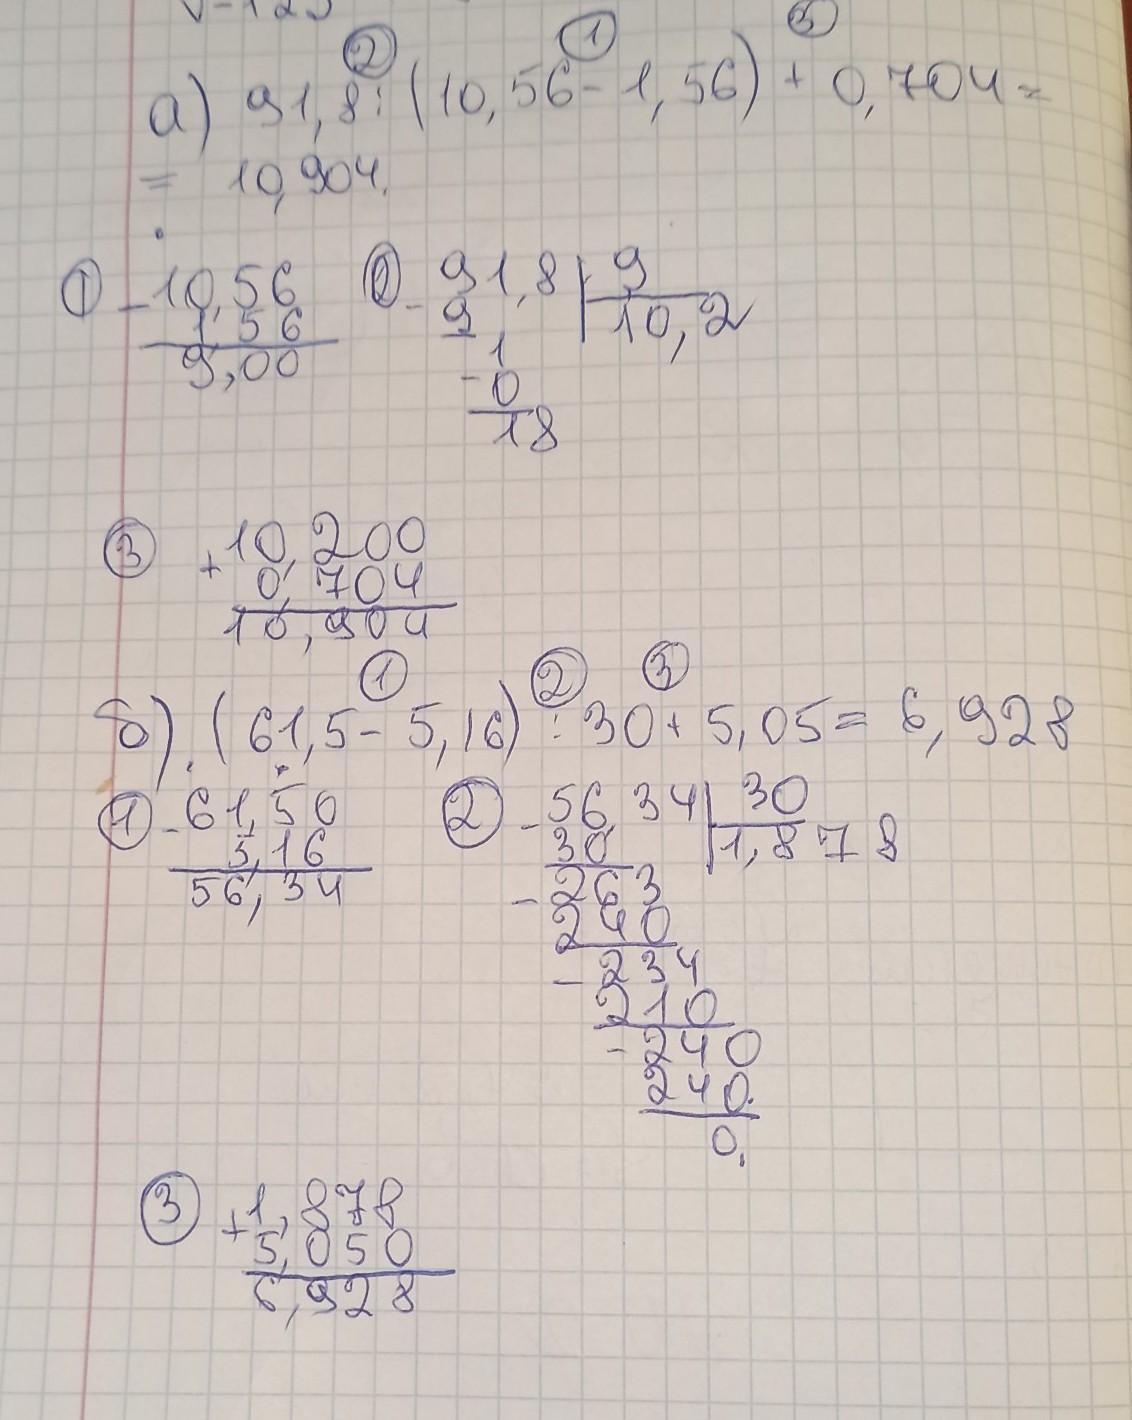 ② ① ③
а) 91,8:(10,56-1,56)+0,704=
= 10,904.
① -10,56
1,56
9,00
② -91,8 | 9
9 | 10,2
1
-0
18
③ +10,200
0,704
10,904
① ② ③
б) (61,5-5,16):30+5,05=6,928
① -61,50
5,16
56,34
② -56,34 | 30
30 | 1,878
-263
240
-234
210
-240
240
0.
③ +1,878
5,050
6,928